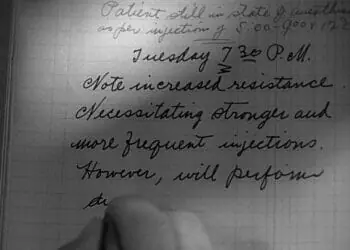 Patient still in state of
as per injection of 8.00
Tuesday 7 30 P.M.
Note increased resistance.
Necessitating stronger and
more frequent injections.
However, will perform